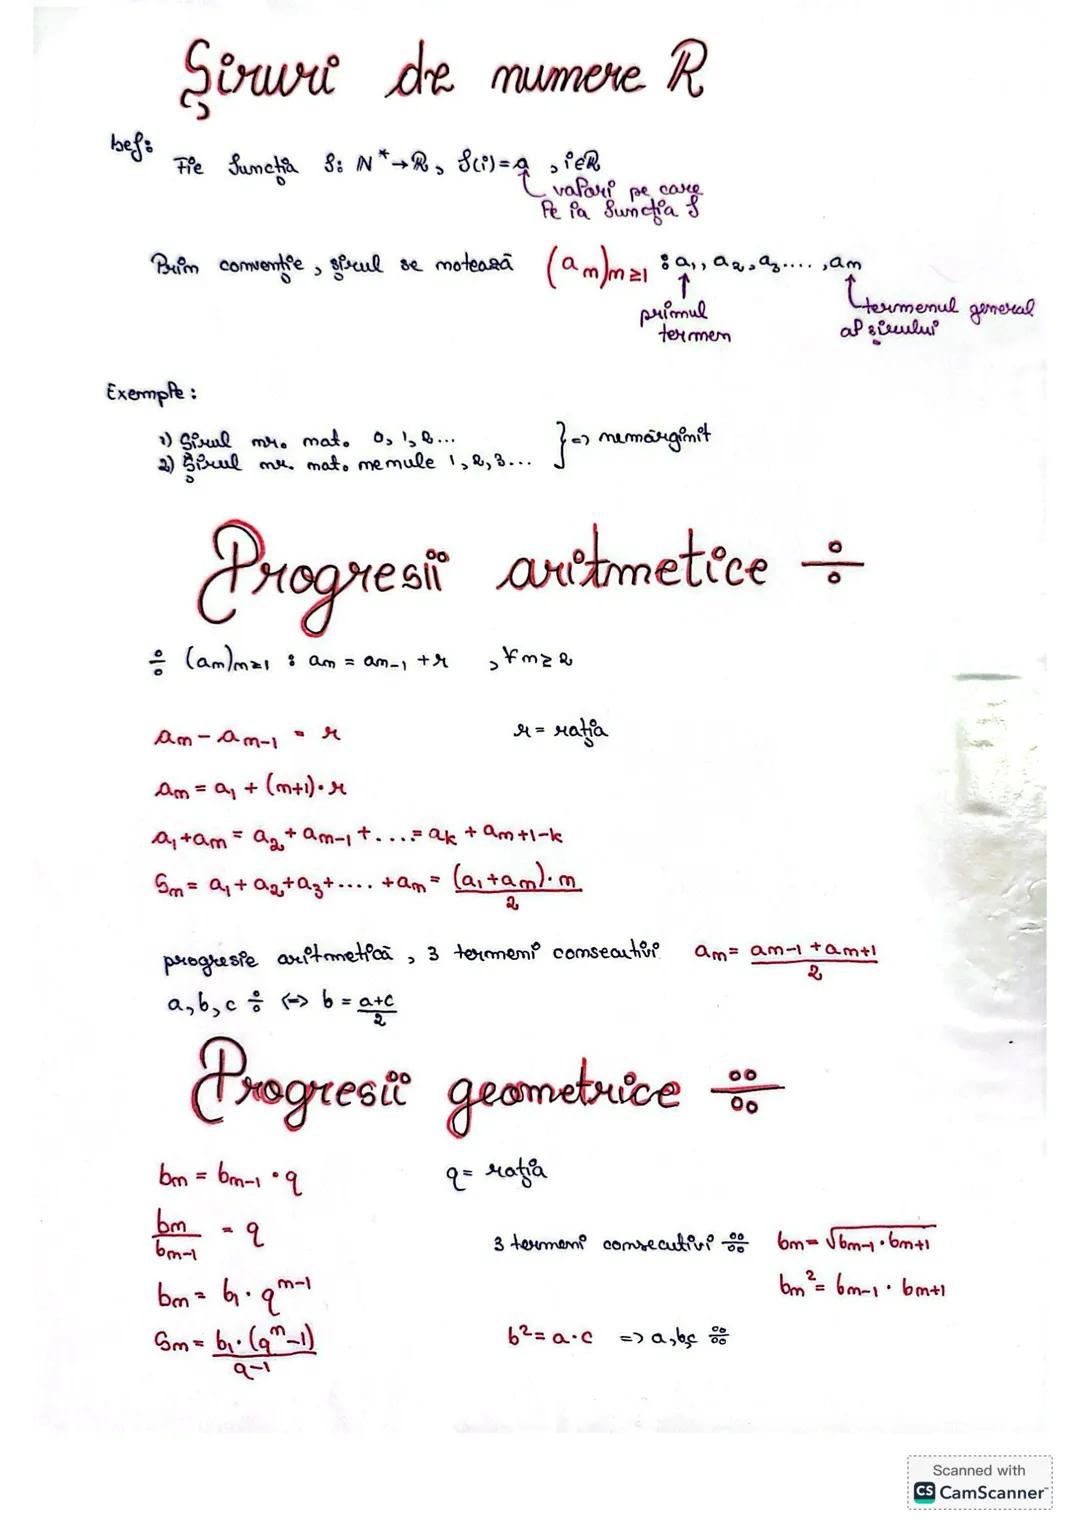 Șiruri de numere R
Def:
Fie funcția f: N* → R, f(i) = a , i∈R
valori pe care
le ia funcția f
Prim convenție, șirul se notează (an)n≥1 : a1, a2, a3...., an
primul
termen
termenul general
al șirului
Exemple:
1) Șirul nr. nat. 0, 1, 2...
2) Șirul nr. nat. nenule 1, 2, 3...
} => nemărginit
Progresii aritmetice ÷
÷ (an)n≥1 : an = an-1 + r , ∀ n ≥ 2
an - an-1 = r r = rația
an = a1 + (n+1)·r
a1 + an = a2 + an-1 + .... = ak + an+1-k
Sn = a1 + a2 + a3 + .... + an = (a1 + an)·n / 2
progresie aritmetică, 3 termeni consecutivi an = an-1 + an+1 / 2
a, b, c ÷ <=> b = a+c / 2
Progresii geometrice ∺
bn = bn-1 · q q = rația
bn / bn-1 = q
3 termeni consecutivi ∺ bn = √bn-1 · bn+1
bn = b1 · q^n-1 bn² = bn-1 · bn+1
Sn = b1·(q^n - 1) / q-1
b² = a·c => a, b, c ∺
Scanned with
CS CamScanner